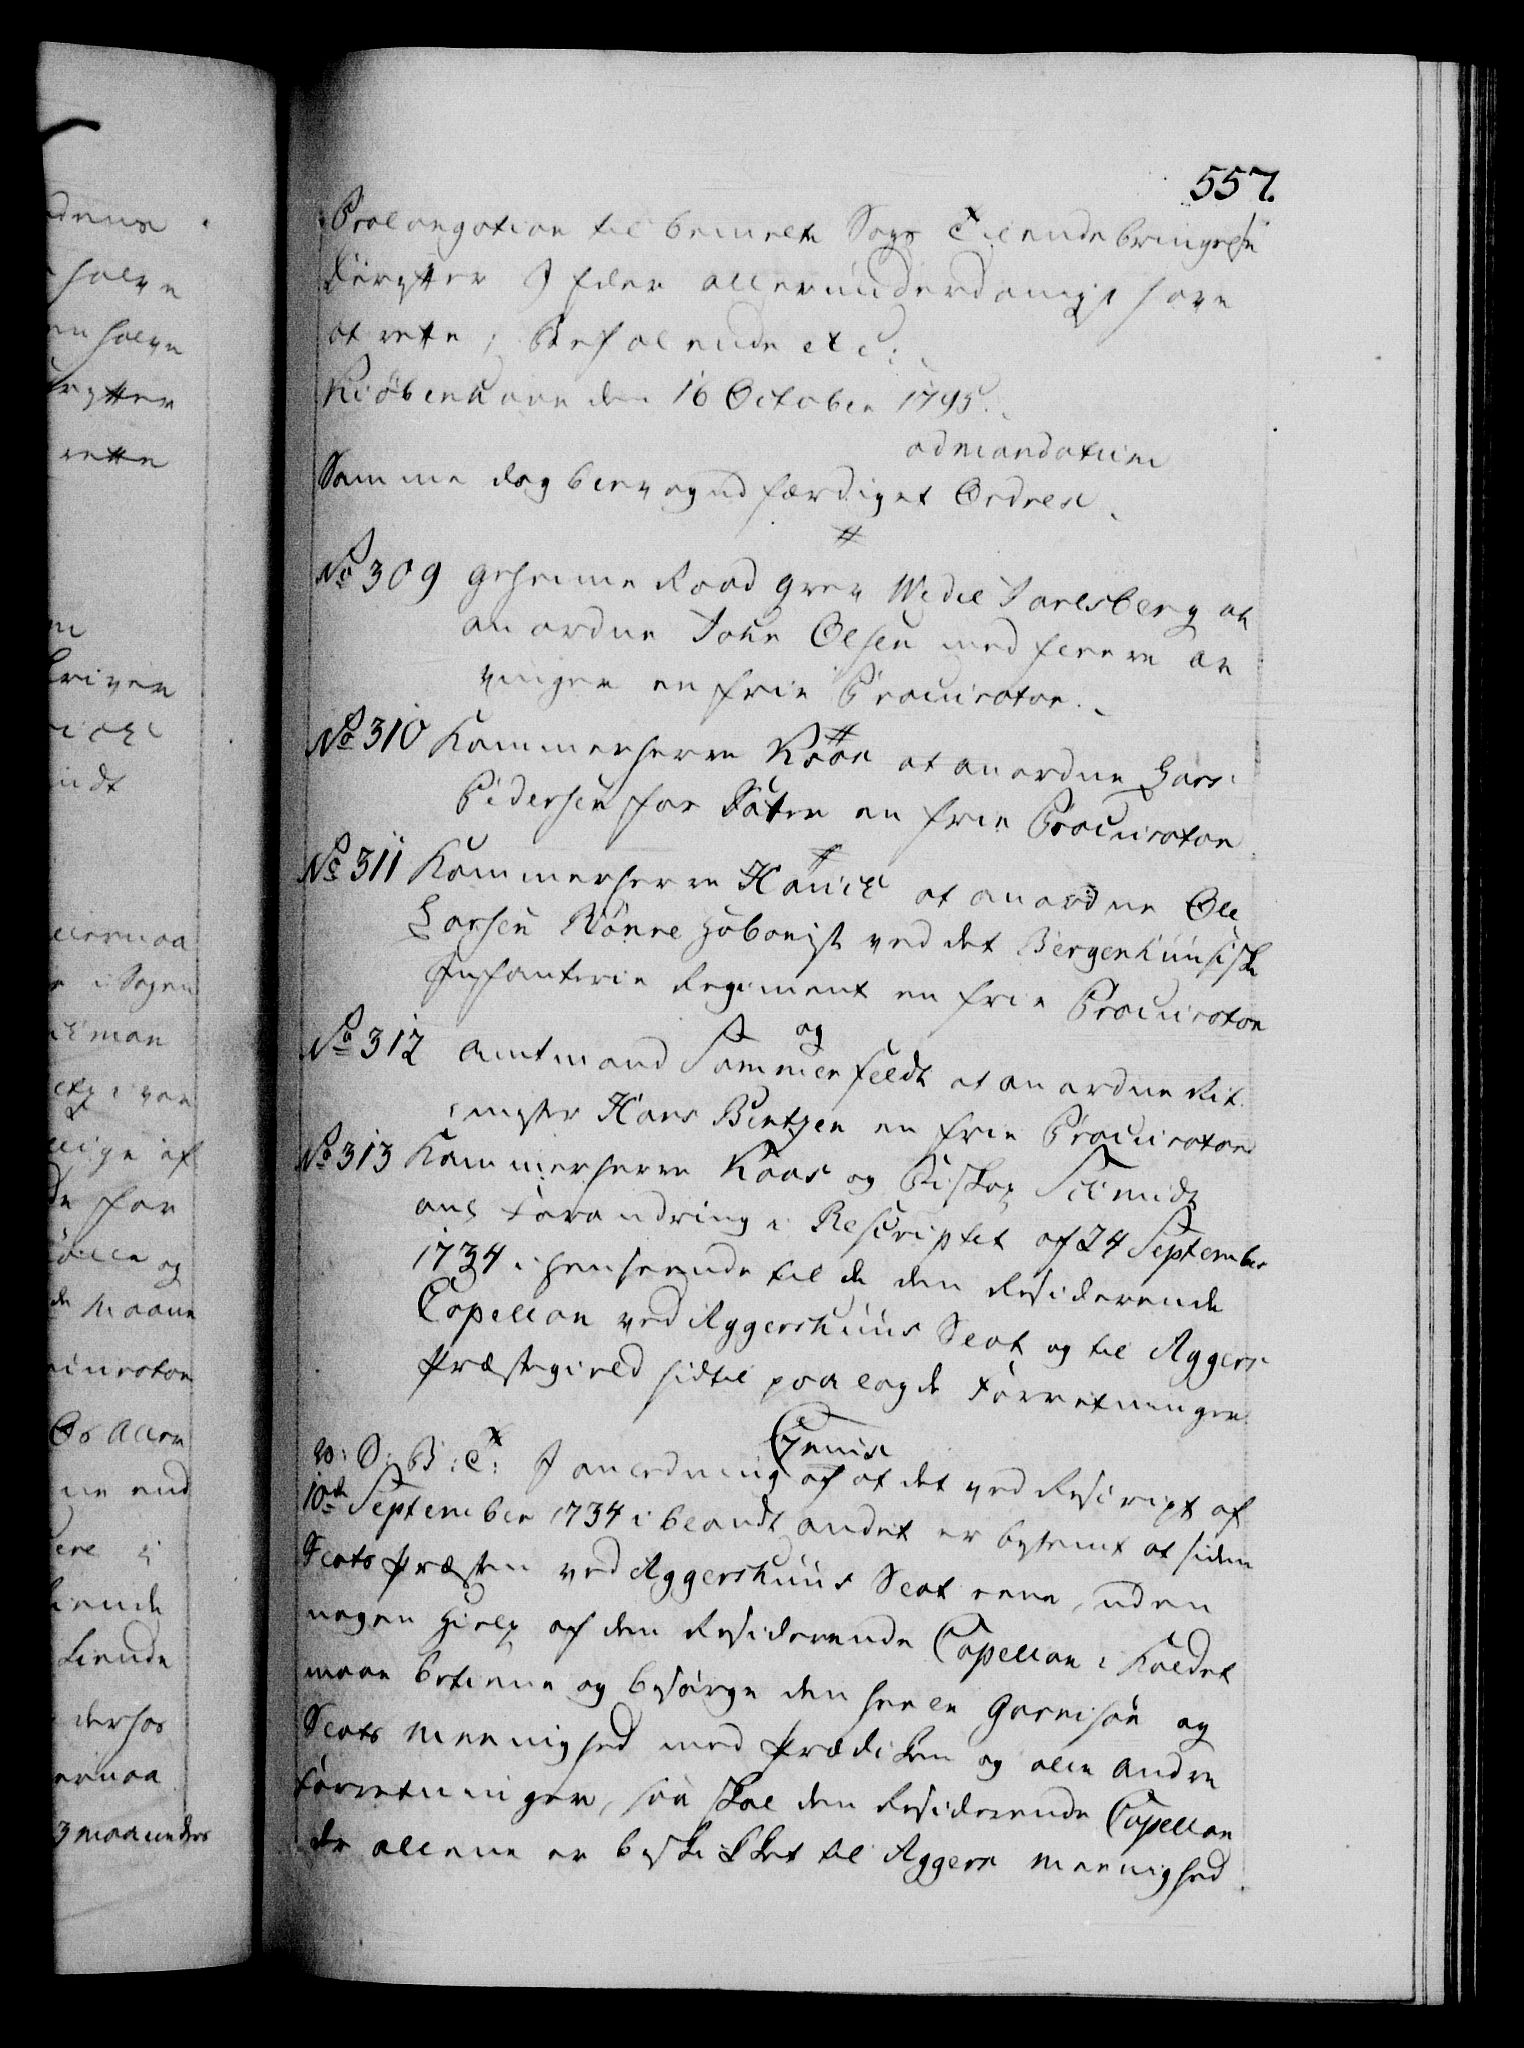 557.
Prolongation til bemelte Sags Tilendebringelse
Hvorefter I Eder allerunderdanigst have
at rette, Befalende etc:
Kiöbenhavn den 16 October 1795.
ad mandatum
Samme dag blev og udfærdiget Ordres.
No 309 Geheime Raad Grev Wedel Jarlsberg at
anordne John Olsen med fleere Ar
vinger en frie Procurator.
No 310 Kammerherre Kaas at anordne Lars
Pedersen en frie Procurator
No 311 Kammerherre Hauch at anordne Ole
Larsen Rönne Hoboist ved det Bergenhuusiske
Infanterie Regiment en frie Procurator
No 312 Amtmand Sommerfeldt at anordne Rit
mester Hans Bentzen en frie Procurator
No 313 Kammerherre Kaas og Biskop Schmidt
ang Forandring i Rescriptet af 24 September
1734 i henseende til de den Residerende
Capellan ved Aggershuus Slot og til Aggers
Præstegield hidtil paalagde Forretninger.
V: S: G: T: I anledning af at det ved Rescript af
10de September 1734 iblandt andet er bestemt at siden
Slots Præsten ved Aggershuus Slot ene, uden
nogen Hielp af den Residerende Capellan i Kaldet
maae betiene og besörge den heele Garnison og
Slots Meenighed med Prædiken og alle andre
Forretninger, saa skal den Residerende Capellan
der allene er beskikket til Aggers Meenighed